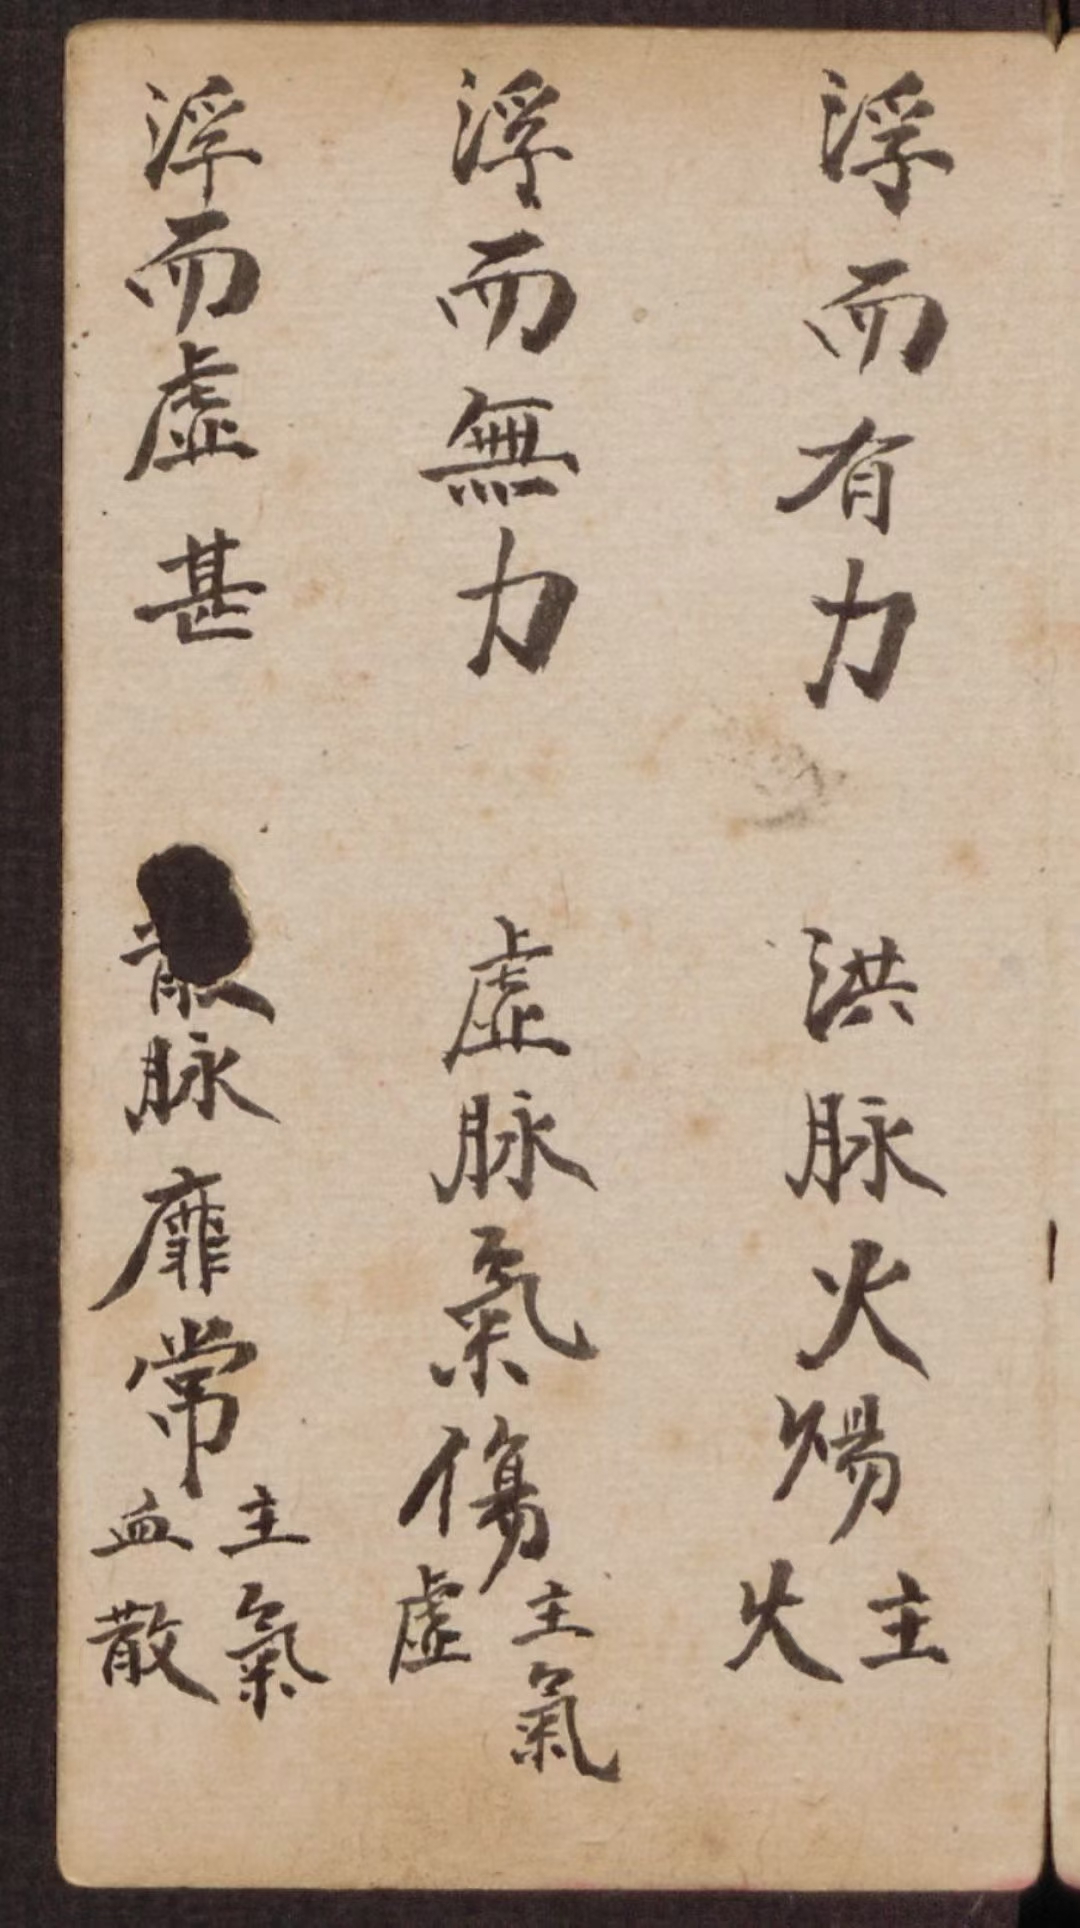 浮而有力　洪脉火煬主火
浮而無力　虛脉氣傷主氣虛
浮而虛甚　散脉靡常主氣血散